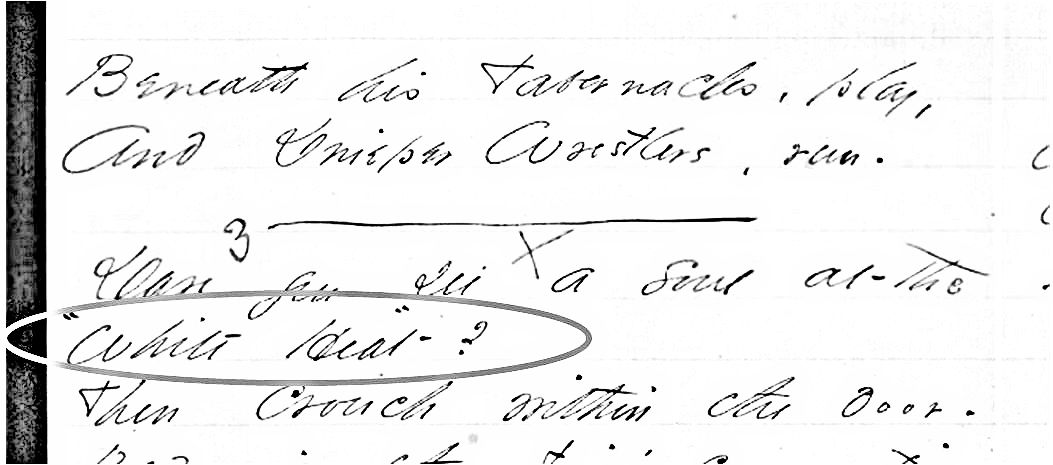 Beneath his Tabernacles, play,
And Dnieper Wrestlers, run.
3
Dare you see a Soul at the
"White Heat"?
Then crouch within the door.